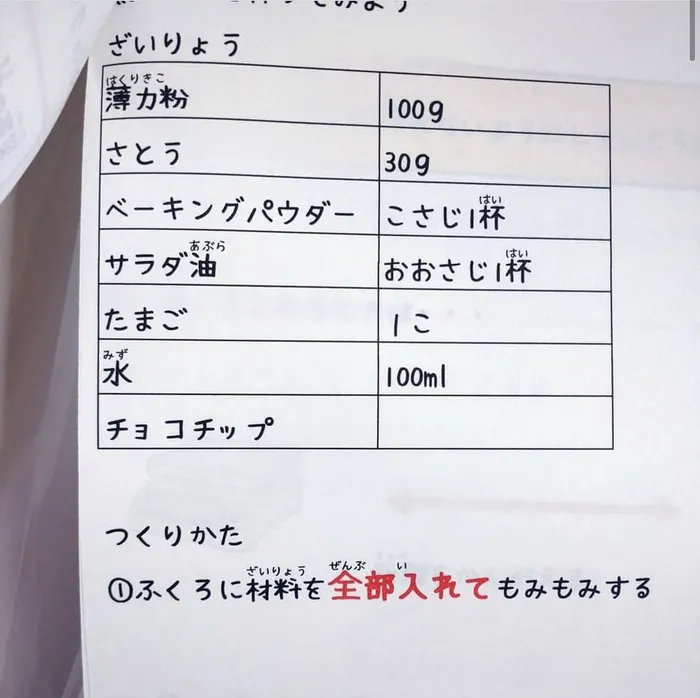 ざいりょう
はくりきこ
薄力粉 100g
さとう 30g
はい
ベーキングパウダー こさじ1杯
あぶら はい
サラダ油 おおさじ1杯
たまご 1こ
みず
水 100ml
チョコチップ
つくりかた
ざいりょう ぜんぶ い
①ふくろに材料を全部入れてもみもみする